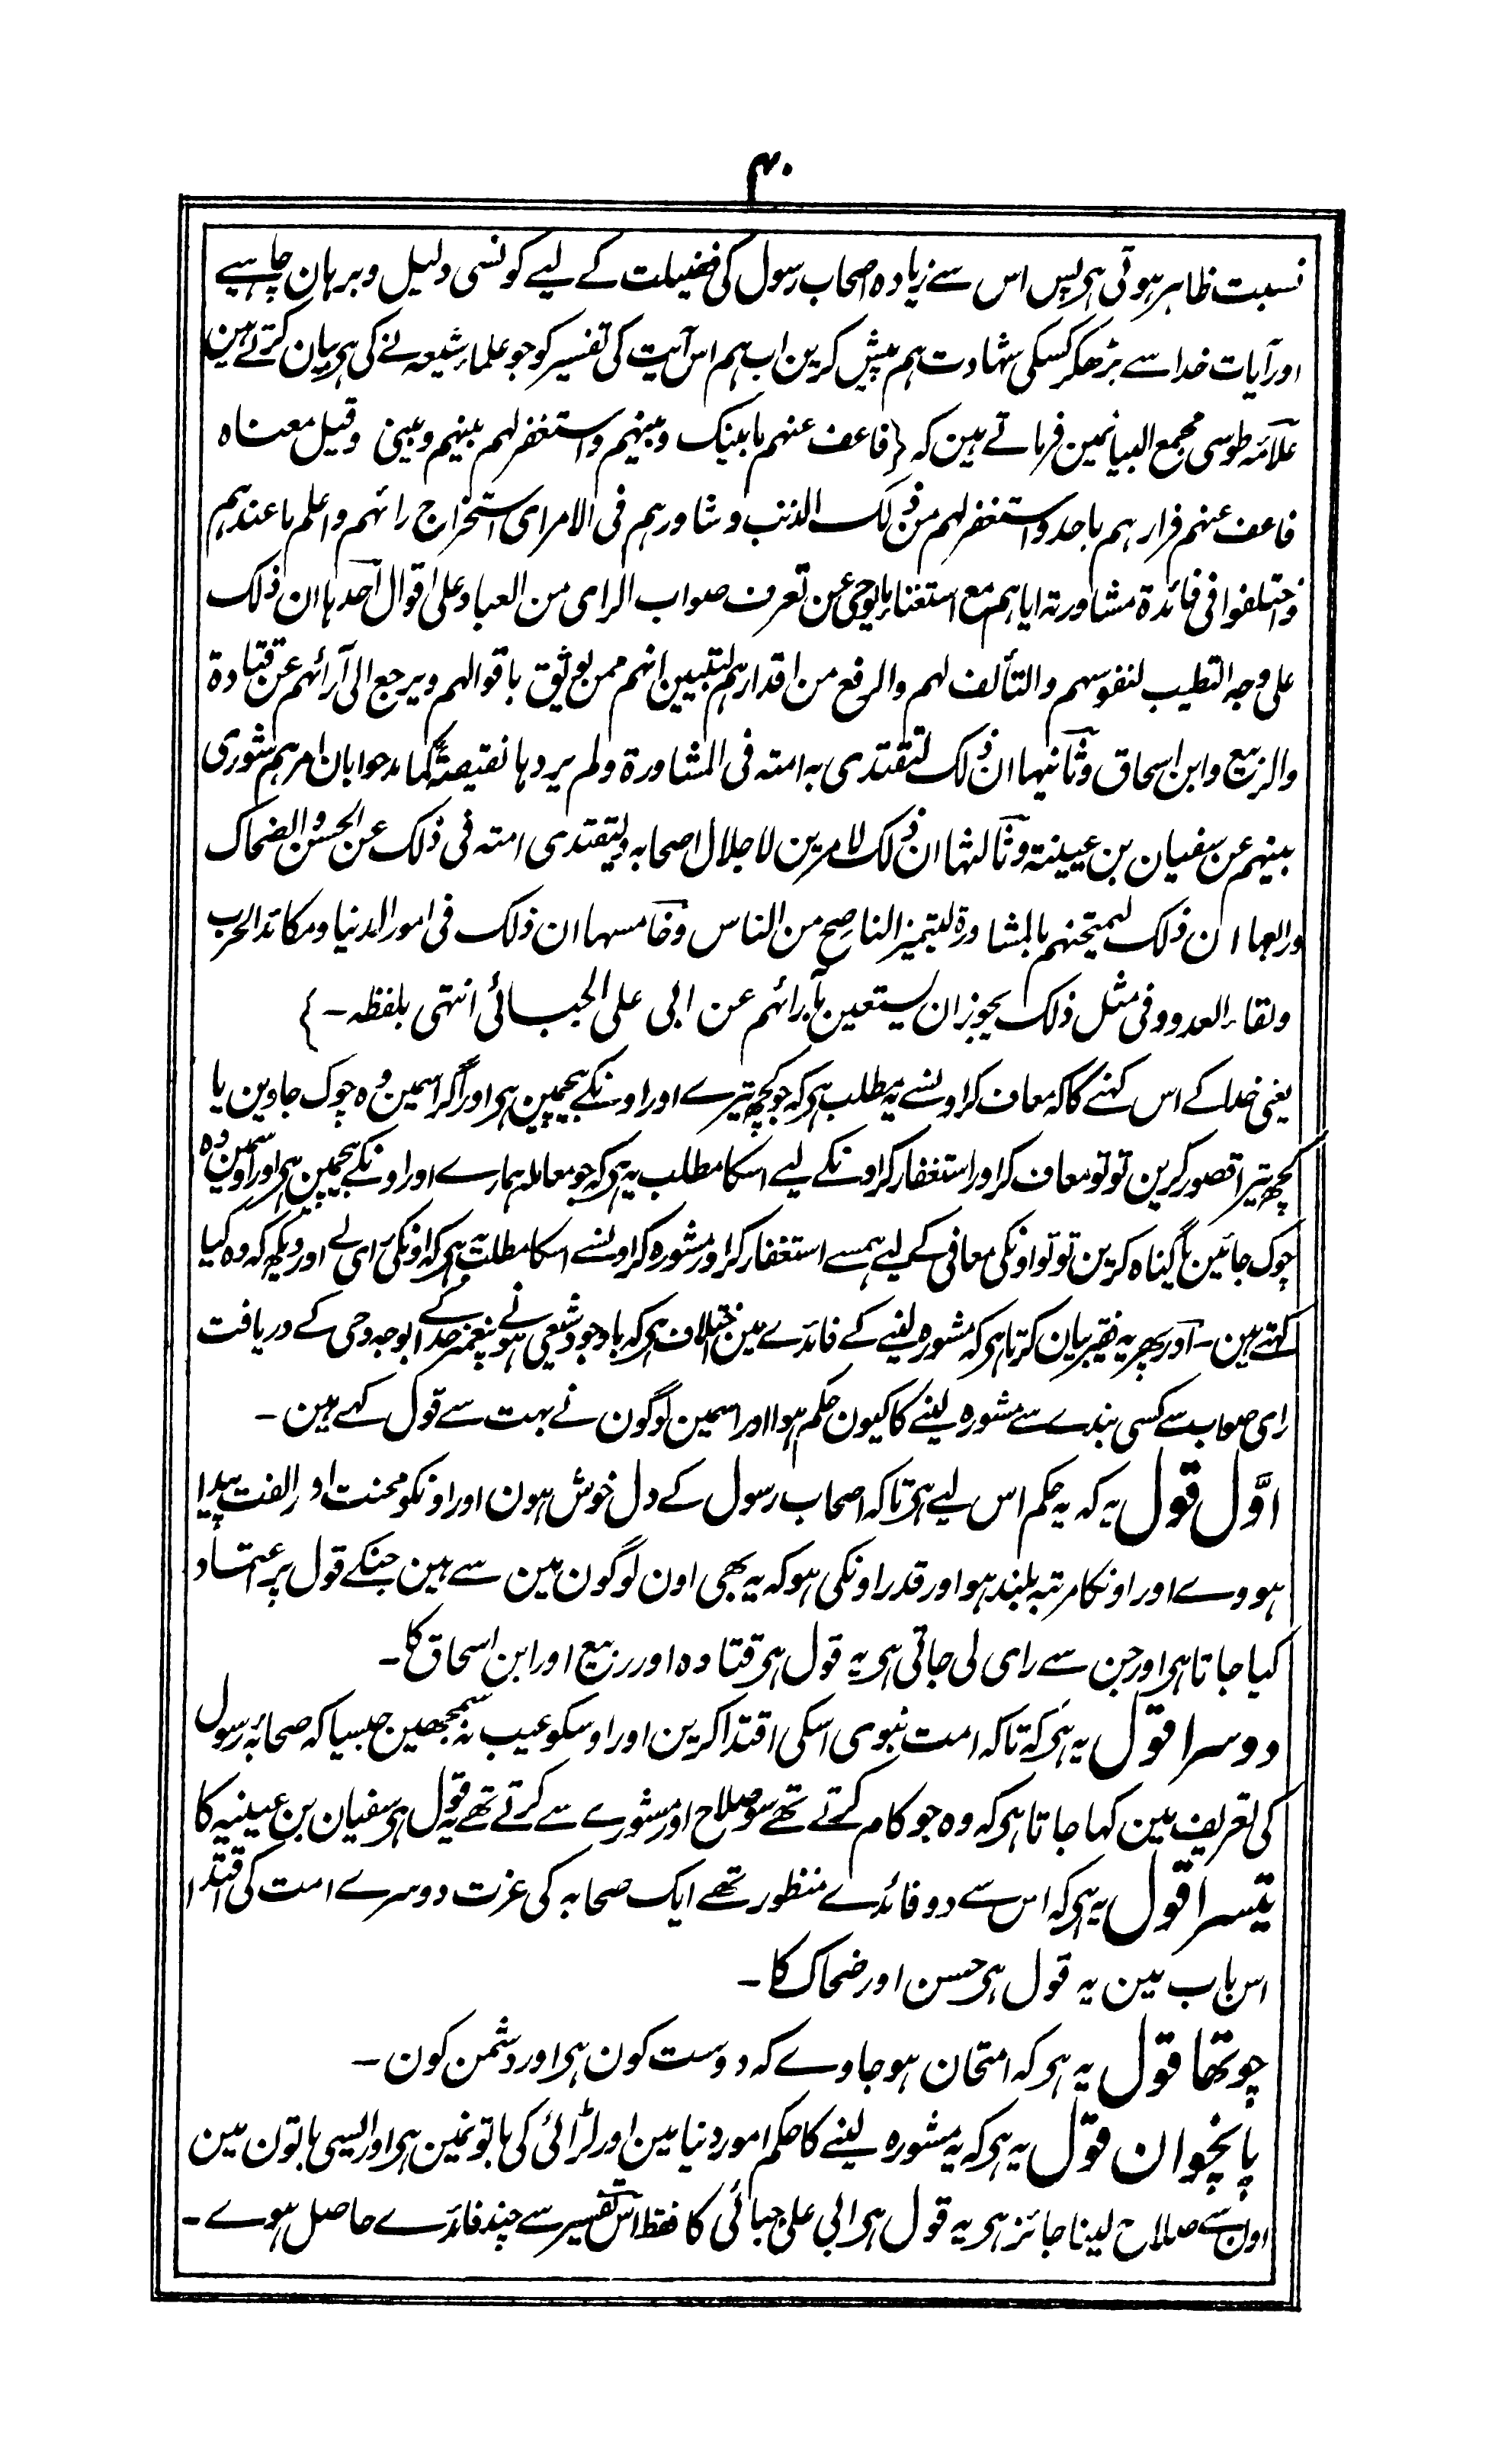 ۴۰
نسبت ظاہر ہوتی ہی پس اس سے زیادہ اصحاب رسول کی فضیلت کے لیے کونسی دلیل و برہان چاہیے
اور آیات خدا سے بڑھکر کسکی شہادت ہم پیش کرین اب ہم اس آیت کی تفسیر کو جو علماء شیعہ نے کی ہی بیان کرتے ہین
علامۂ طوسی مجمع البیانمین فرماتے ہین کہ {فاعف عنہم ما بینک و بینہم و استغفر لہم بینہم و بینی وقیل معناہ
فاعف عنہم فرارہم باحد و استغفر لہم من ذلک الذنب و شاورہم فی الامر ای استخراج رائہم و اعلم ما عندہم
واختلفوا فی فائدۃ مشاورتہ ایاہم مع استغناءہ بالوحی عن تعرف صواب الرای من العباد علی اقوال احدہا ان ذلک
علی وجہ التطیب لنفوسہم والتألف لہم والرفع من اقدارہم لتبیین انہم ممن یوثق باقوالہم ویرجع الی آرائہم عن قتادۃ
والربیع وابن اسحاق وثانیہا ان ذلک لتقتدی بہ امتہ فی المشاورۃ ولم یردہا نقیصۃ کما مدحوا بان امرہم شوری
بینہم عن سفیان بن عیینۃ وثالثہا ان ذلک لامرین لاجلال اصحابہ ولیقتدی امتہ فی ذلک عن الحسن والضحاک
ورابعہا ان ذلک لیمتحنہم بالمشاورۃ لیتمیز الناصح من الناس وخامسہا ان ذلک فی امور الدنیا ومکائد الحرب
ولقاء العدو وفی مثل ذلک یجوز ان یستعین بآرائہم عن ابی علی الجبائی انتہی بلفظہ ۔}
یعنی خدا کے اس کہنے کا کہ معاف کر اونسے یہ مطلب ہی کہ جو کچھ تیرے اور اونکے بیچمین ہی اور اگر اسمین وہ چوک جاوین یا
کچھ تیرا قصور کرین تو تو معاف کر اور استغفار کر اونکے لیے اسکا مطلب یہ ہی کہ جو معاملہ ہمارے اور اونکے بیچمین ہی اور اوسمین وہ
چوک جائین یا گناہ کرین تو تو اونکی معافی کے لیے ہمسے استغفار کر اور مشورہ کر اونسے اسکا مطلب یہ ہی کہ اونکی رای لے اور دیکھ کہ وہ کیا
کہتے ہین ۔ اور پھر یہ فقیر بیان کرتا ہی کہ مشورہ لینے کے فائدے مین اختلاف ہی کہ باوجود مستغنی ہونے پیغمبر خدا کے بوجہ وحی کے دریافت
رای صواب سے کسی بندے سے مشورہ لینے کا کیون حکم ہوا اور اسمین لوگون نے بہت سے قول کہے ہین ۔
اوّل قول یہ کہ یہ حکم اس لیے ہی تاکہ اصحاب رسول کے دل خوش ہون اور اونکو محنت اور الفت پیدا
ہووے اور اونکا مرتبہ بلند ہو اور قدر اونکی ہو کہ یہ بھی اون لوگون مین سے ہین جنکے قول پر اعتماد
کیا جاتا ہی اور جن سے رای لی جاتی ہی یہ قول ہی قتادہ اور ربیع اور ابن اسحاق کا ۔
دوسرا قول یہ ہی کہ تاکہ امت نبوی اسکی اقتدا کرین اور اوسکو عیب نہ سمجھین جیسا کہ صحابۂ رسول
کی تعریف مین کہا جاتا ہی کہ وہ جو کام کرتے تھے سو صلاح اور مشورے سے کرتے تھے یہ قول ہی سفیان بن عیینہ کا
تیسرا قول یہ ہی کہ اس سے دو فائدے منظور تھے ایک صحابہ کی عزت دوسرے امت کی اقتدا
اس باب مین یہ قول ہی حسن اور ضحاک کا ۔
چوتھا قول یہ ہی کہ امتحان ہو جاوے کہ دوست کون ہی اور دشمن کون ۔
پانچوان قول یہ ہی کہ یہ مشورہ لینے کا حکم امور دنیا مین اور لڑائی کی باتونمین ہی اور ایسی باتون مین
اون سے صلاح لینا جائز ہی یہ قول ہی ابی علی جبائی کا فقط اس تفسیر سے چند فائدے حاصل ہوے ۔